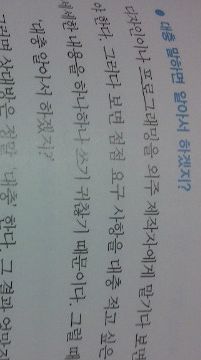 대충 말하면 알아서 하겠지?
디자인이나 프로그래밍을 외주 제작자에게 맡기다 보면
야 한다. 그러다 보면 점점 요구 사항을 대충 적고 싶은
세세한 내용을 하나하나 쓰기 귀찮기 때문이다. 그럴 때
'대충 알아서 하겠지?'
그러면 상대방은 정말 '대충' 한다. 그 결과